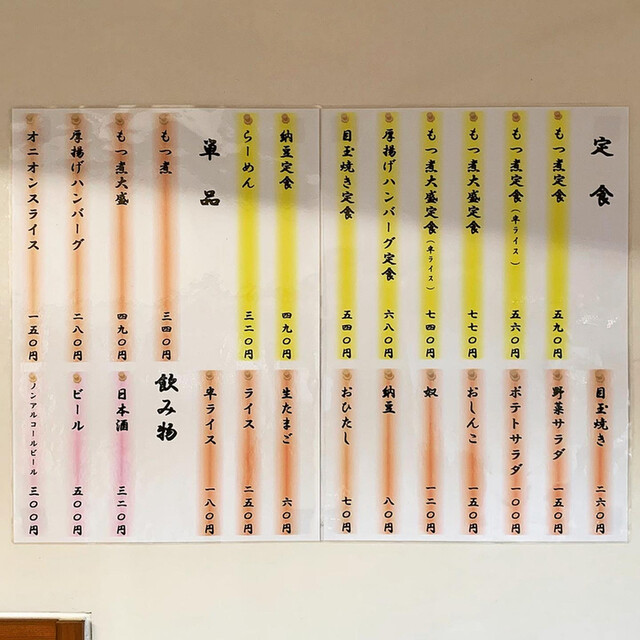 定食
もつ煮定食 五九〇円
もつ煮定食(半ライス) 五六〇円
もつ煮大盛定食 七七〇円
もつ煮大盛定食(半ライス) 七四〇円
厚揚げハンバーグ定食 六八〇円
目玉焼き定食 五四〇円
納豆定食 四九〇円
らーめん 三二〇円
単品
もつ煮 三四〇円
もつ煮大盛 四九〇円
厚揚げハンバーグ 二八〇円
オニオンスライス 一五〇円
目玉焼き 二六〇円
野菜サラダ 一五〇円
ポテトサラダ 一〇〇円
おしんこ 一五〇円
奴 一二〇円
納豆 八〇円
おひたし 七〇円
生たまご 六〇円
ライス 二五〇円
半ライス 一八〇円
飲み物
日本酒 三二〇円
ビール 五〇〇円
ノンアルコールビール 三〇〇円